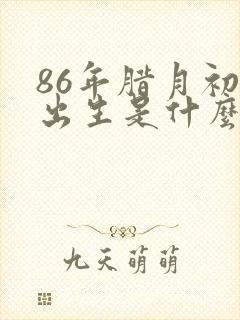 86年腊月初
出生是什麽
九天萌萌